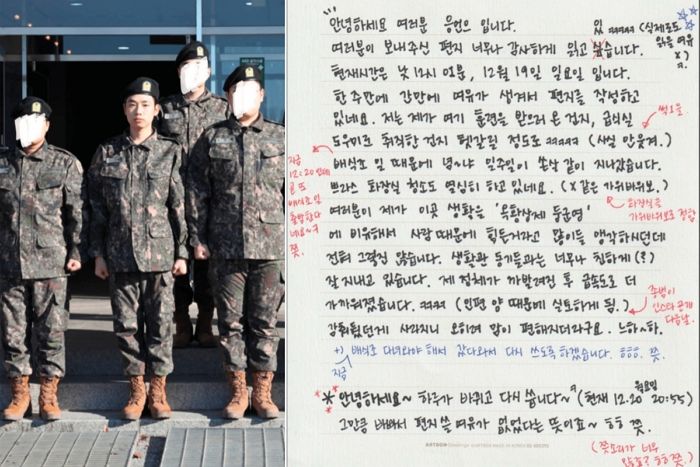 안녕하세요 여러분 응언으 입니다.
여러분이 보내주신 편지 너무나 감사하게 읽고 있습니다.
있 ㅋㅋㅋㅋㅋ (실제로도 읽을 여유 X)
ㅈ.
현재시간은 낮 12시 01분, 12월 19일 일요일 입니다.
한 주만에 간만에 여유가 생겨서 편지를 작성하고
있네요. 저는 제가 여기 훈련을 받으러 온 건지, 급식실
도우미로 취직한 건지 헷갈릴 정도로 ㅋㅋㅋㅋ (사실 안웃겨.)
썩소용
배식조 일 때문에 녕~냐 일주일이 쏜살 같이 지나갔습니다.
쁘라스 화장실 청소도 열심히 하고 있네요. (X같은 가위바위보.)
화장실은 가위바위보로 정함
지금 12:20인데 곧 또 배식조 일 출발한다네요~ㅋ 쯧.
여러분이 제가 이곳 생활을 '옥황상제 문준영'
에 비유하셔서 사람 때문에 힘든거라고 많이들 생각하시던데
전혀 그렇진 않습니다. 생활관 동기들과는 너무나 친하게 (?)
잘 지내고 있습니다. 제 정체가 까발려진 후 급속도로 더
가까워졌습니다. ㅋㅋㅋ (인편 양 때문에 실토하게 됨.)
종범이 인스타 관계 다음날.
감춰뒀던게 사라지니 오히려 맘이 편해지더라구요. 느하~하.
+) 배식조 다녀와야 해서 갔다와서 다시 쓰도록 하겠습니다. ㅎㅎㅎ. 쯧.
지금
*안녕하세요~ 하루가 바뀌고 다시 씁니다~ㅋ (현재 12.20 월요일 20:55)
그만큼 바빠서 편지 쓸 여유가 없었다는 뜻이죠~ ㅎㅎ 쯧.
(쯧소리가 너무
ㅎㅎ 쯧.)